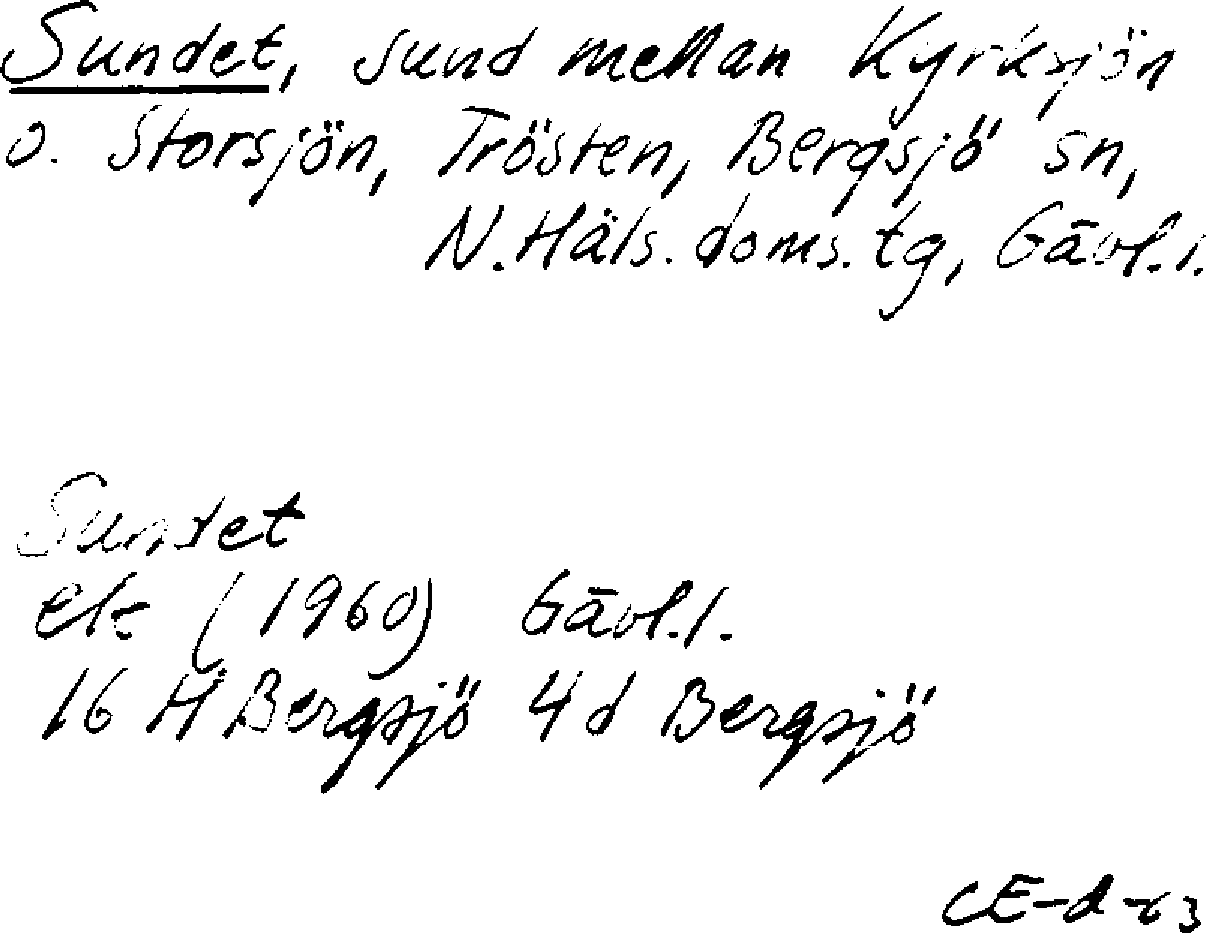 Sundet, sund mellan Kyrksjön
o. Storsjön, Trösten, Bergsjö sn,
N. Häls. doms. tg, Gävl. l.
Sundet
ek (1960) Gävl. l.
16 H Bergsjö 4d Bergsjö
CE-d-63